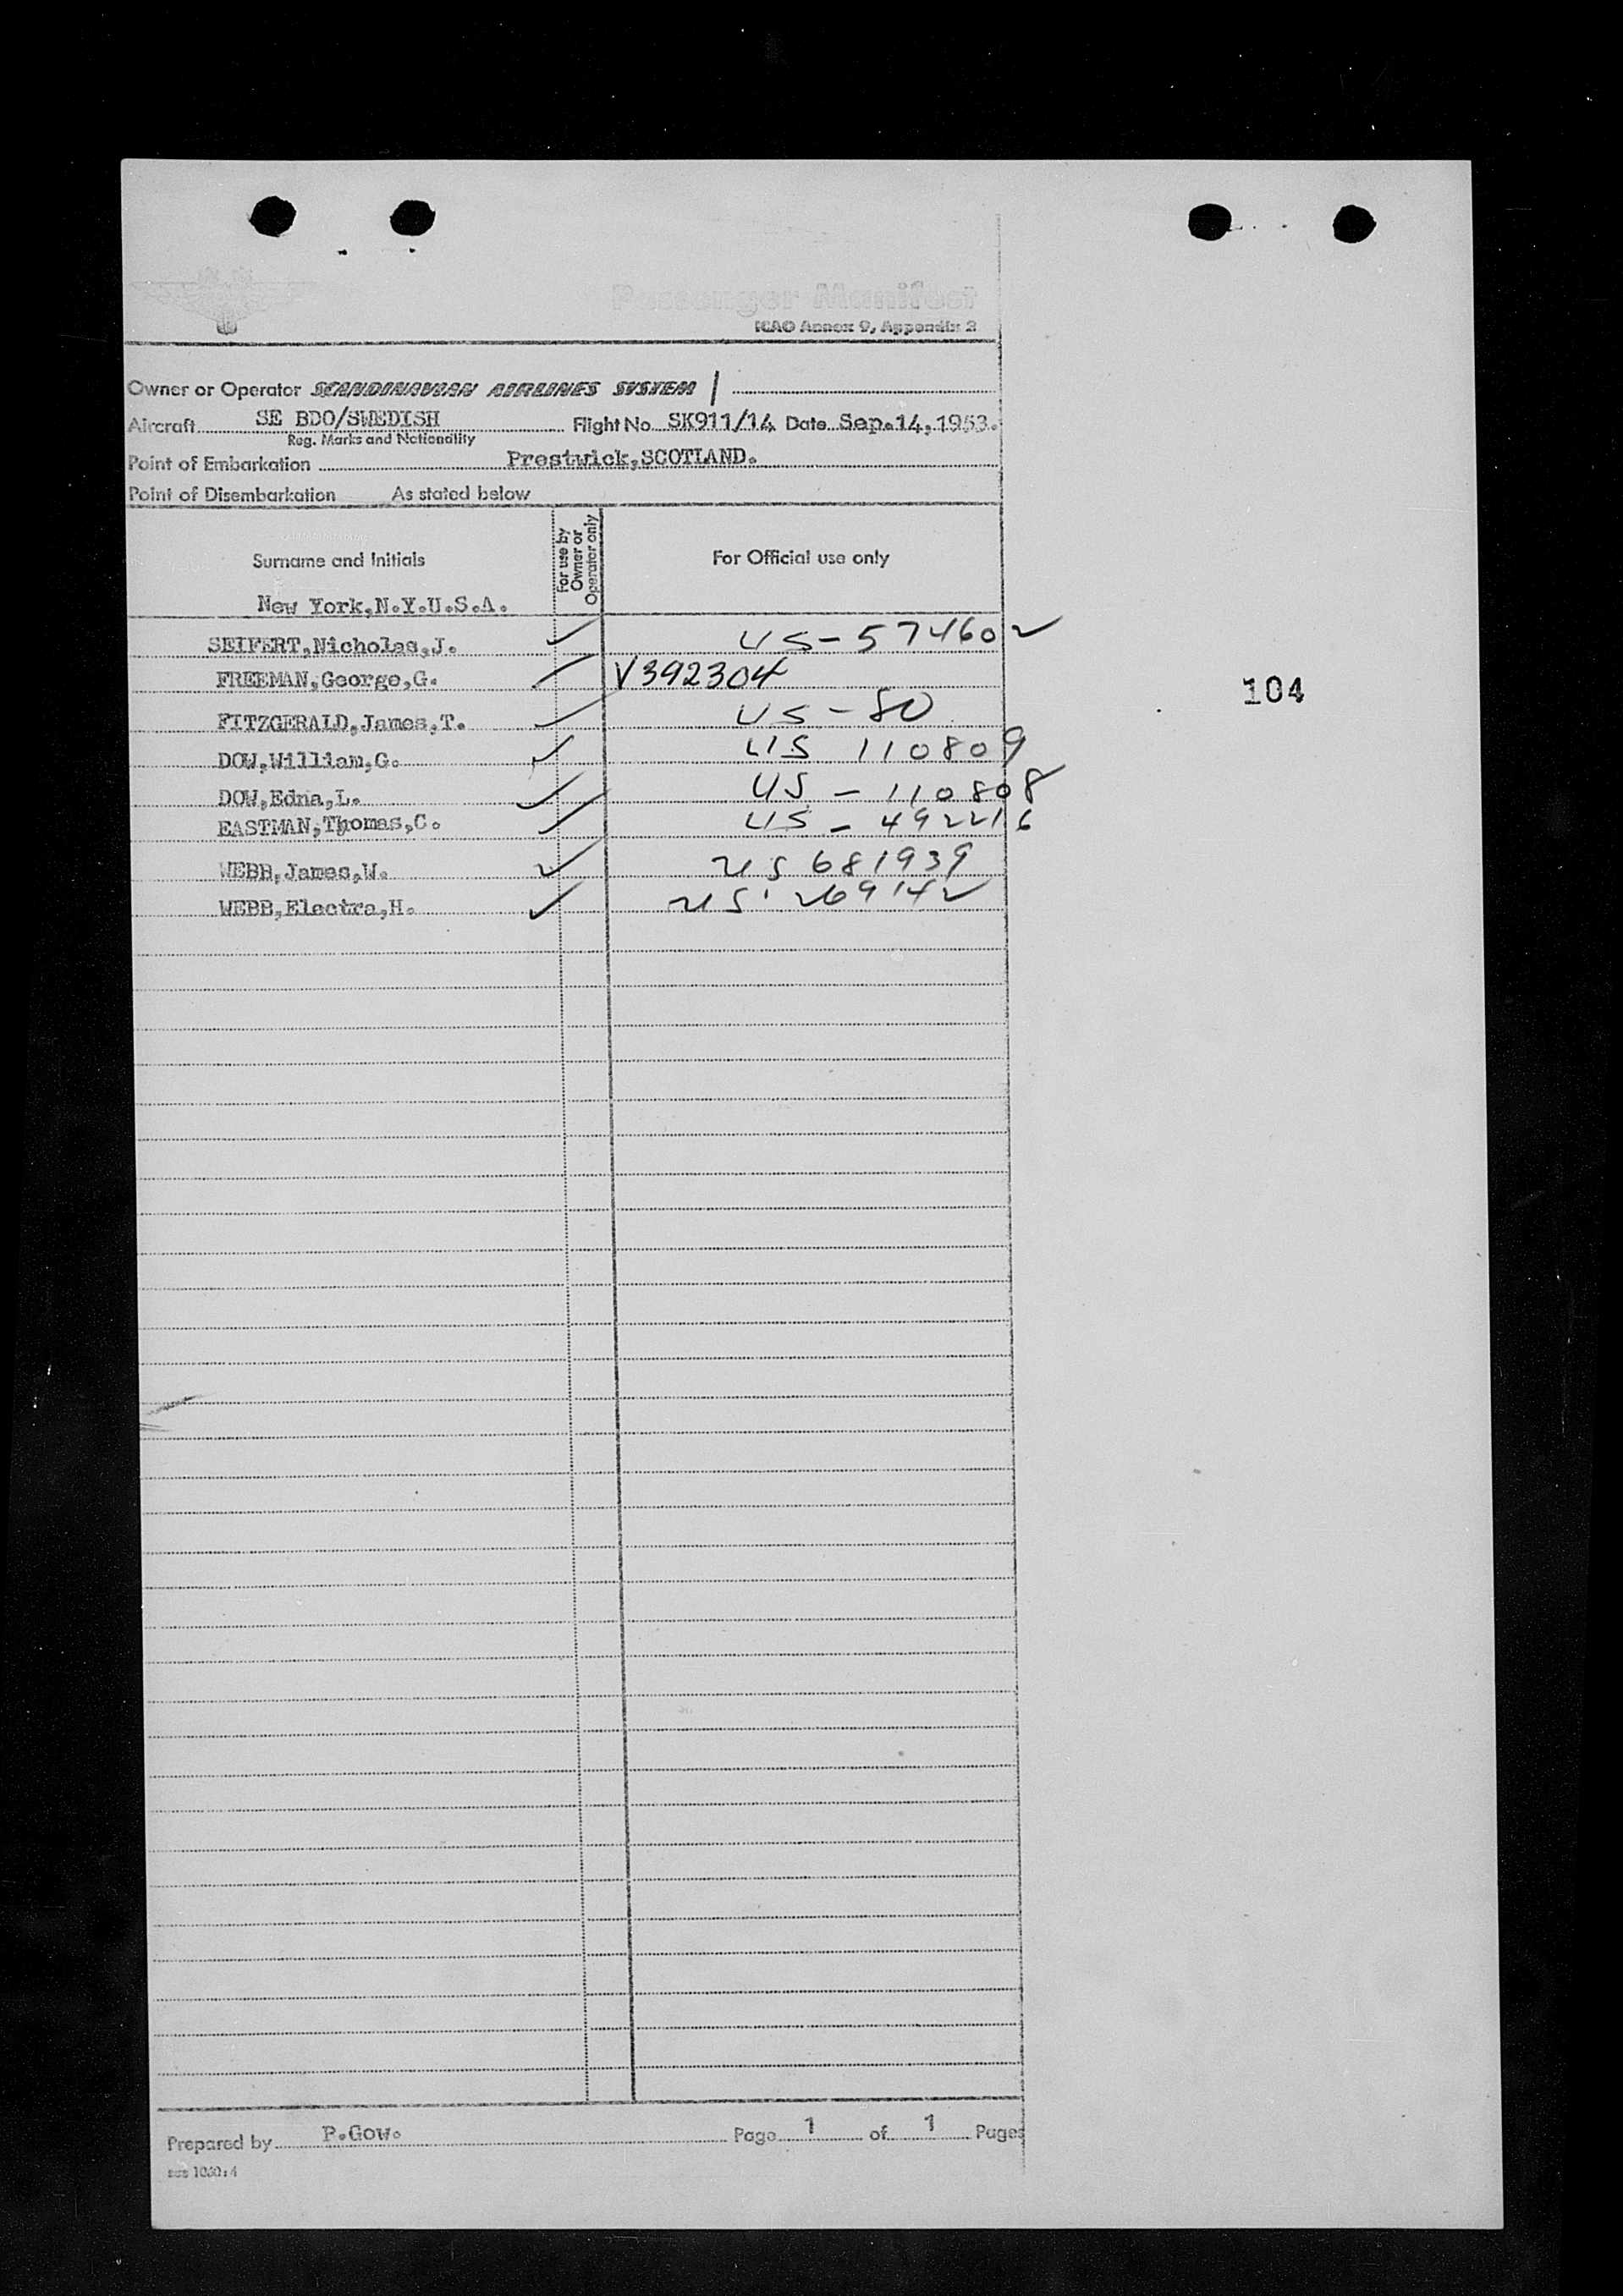 Passenger Manifest
ICAO Annex 9, Appendix 2
Owner or Operator SCANDINAVIAN AIRLINES SYSTEM
Aircraft SE BDO/SWEDISH Flight No SK911/14 Date Sep.14,1953.
Reg. Marks and Nationality
Point of Embarkation Prestwick,SCOTLAND.
Point of Disembarkation As stated below
Surname and Initials For use by Owner or Operator only For Official use only
New York,N.Y.U.S.A.
SEIFERT,Nicholas,J. ✓ US-574602
FREEMAN,George,G. ✓ V392304
104
FITZGERALD,James,T. ✓ US-80
DOW,William,G. ✓ US 110809
DOW,Edna,L. ✓ US-110808
EASTMAN,Thomas,C. ✓ US-492216
WEBB,James,W. ✓ US 681939
WEBB,Electra,H. ✓ US 269142
Prepared by P.Gow. Page 1 of 1 Pages